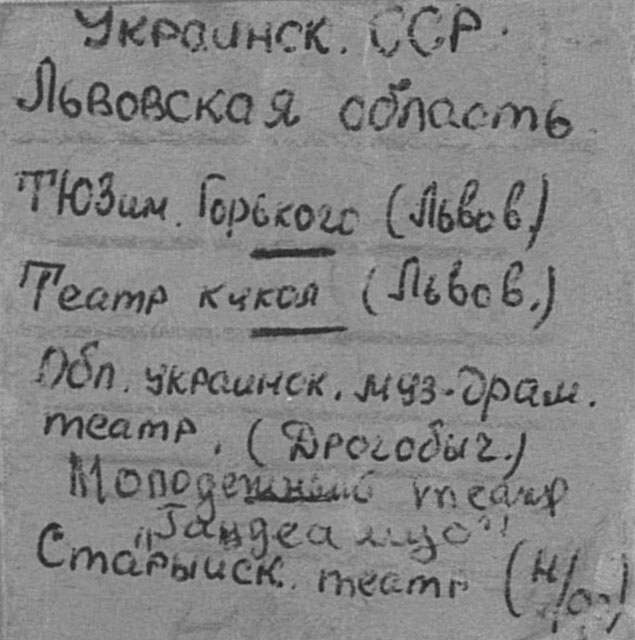 Украинск. ССР.
Львовская область
ТЮЗ им. Горького (Львов)
Театр кукол (Львов.)
Обл. украинск. муз-драм.
театр. (Дрогобыч.)
Молодежный театр
"Гаудеамус"
Старыйск. театр (н/